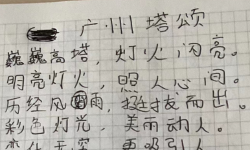 广州塔颂
巍巍高塔，灯火闪亮。
明亮灯火，照人心间。
历经风雨，挺拔而出。
彩色灯光，美丽动人。
变化无穷，更吸引人